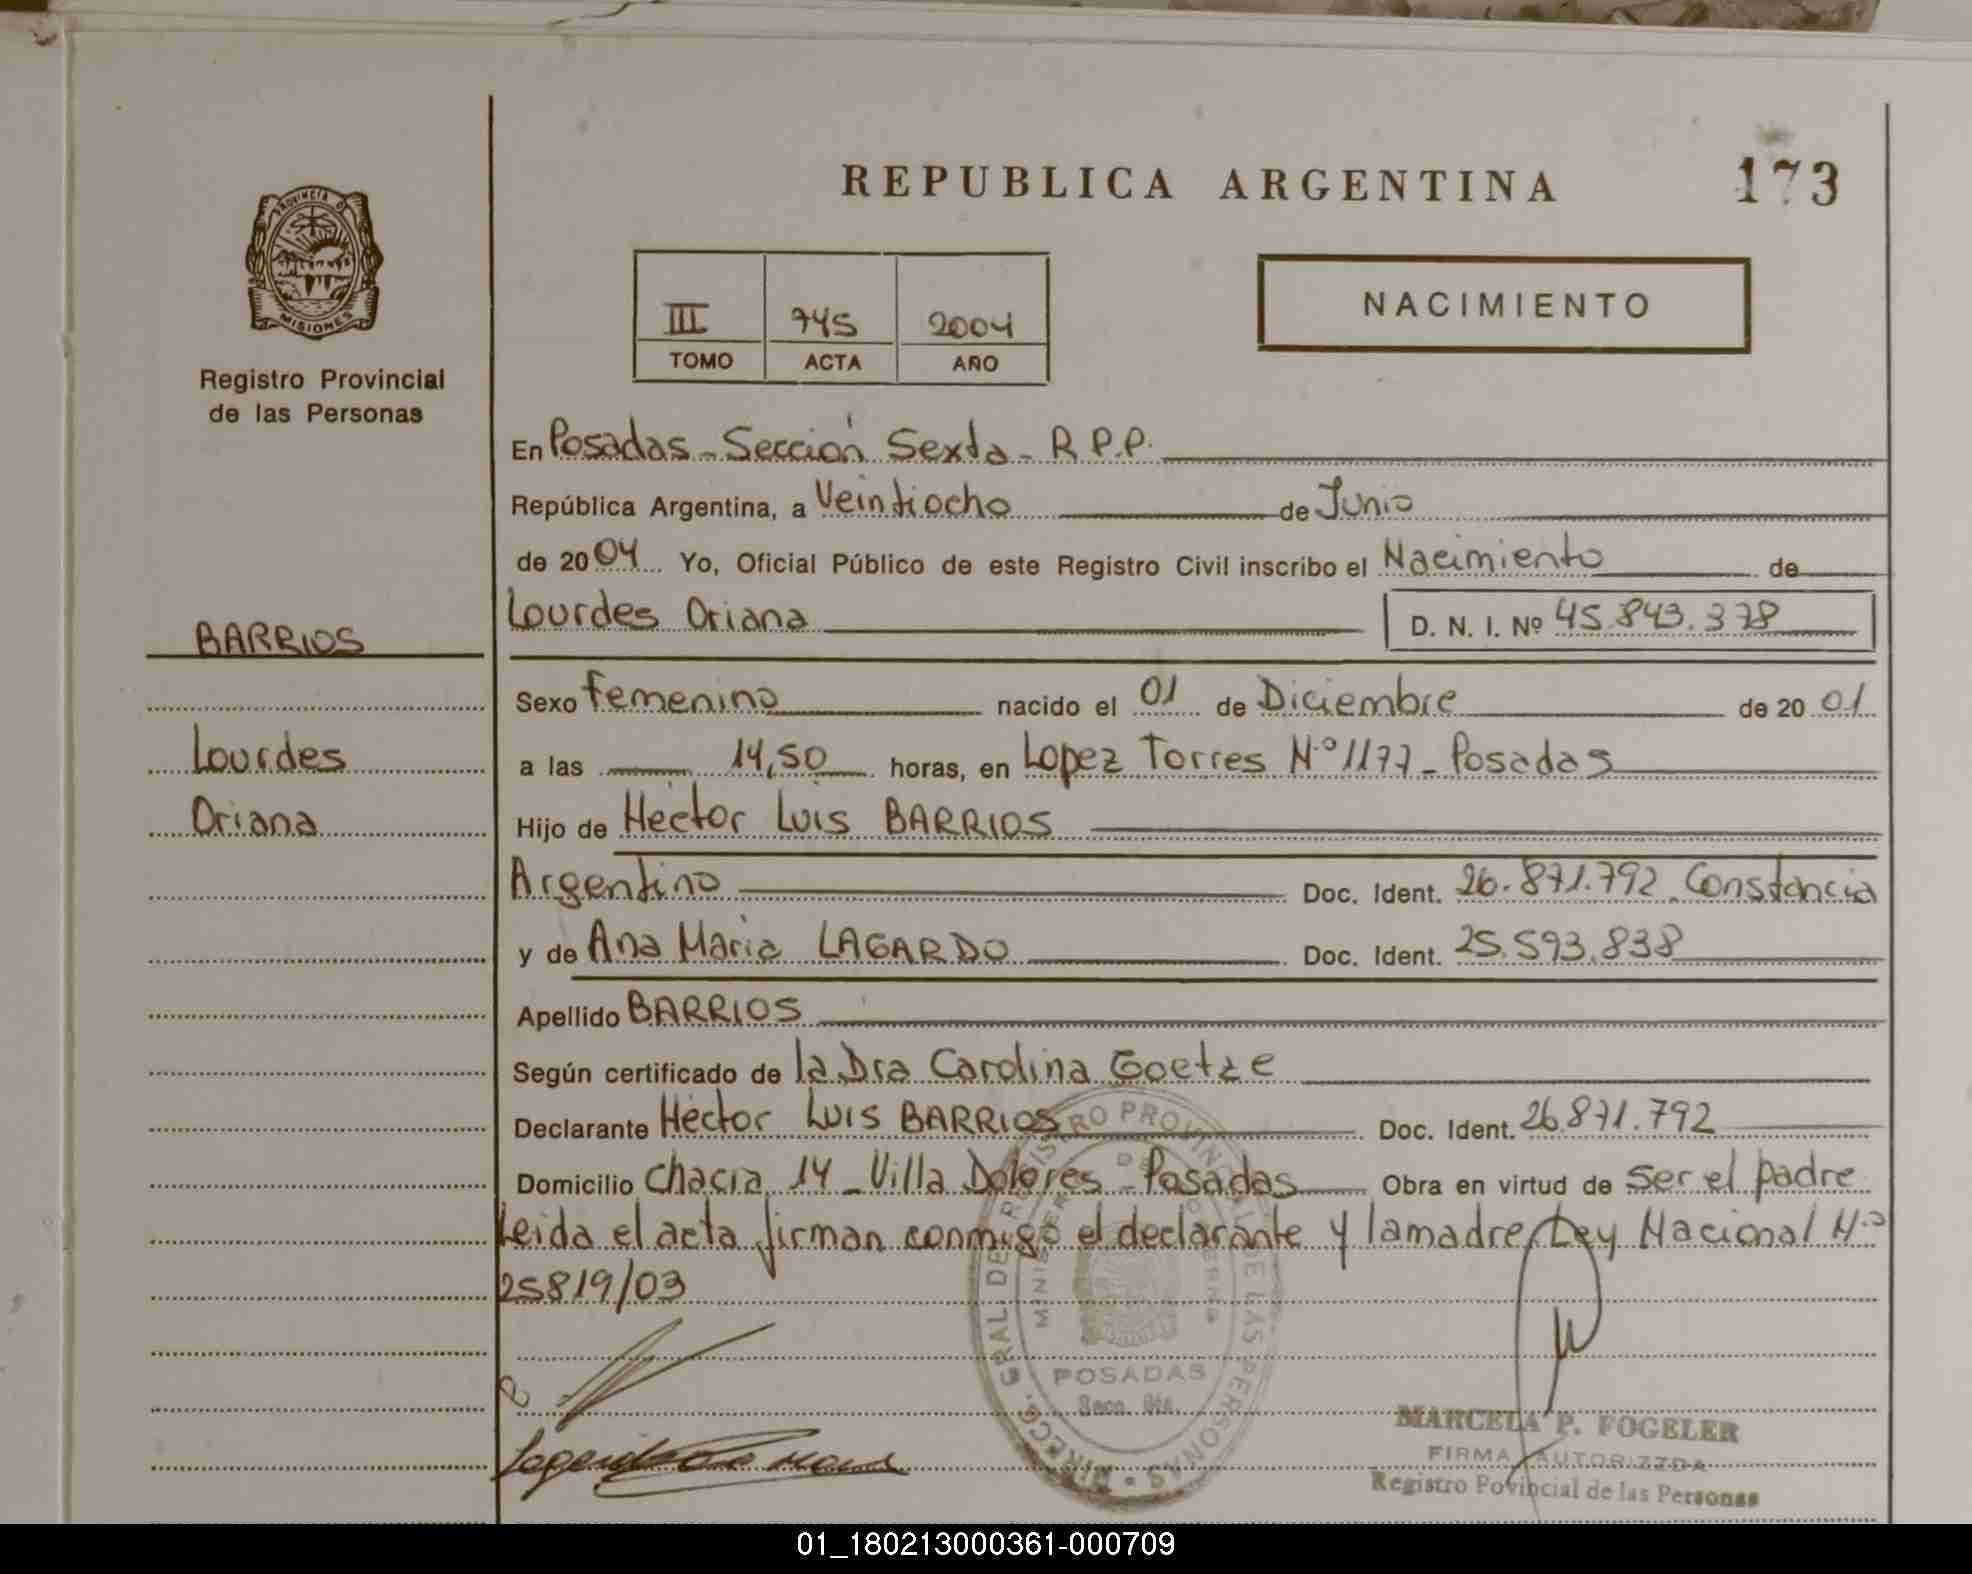 REPUBLICA ARGENTINA
173
PROVINCIA DE
MISIONES
Registro Provincial
de las Personas
III 745 2004
TOMO ACTA AÑO
NACIMIENTO
En Posadas - Sección Sexta - R.P.P.
República Argentina, a Veintiocho de Junio
de 2004 Yo, Oficial Público de este Registro Civil inscribo el Nacimiento de
Lourdes Oriana D. N. I. Nº 45.843.378
BARRIOS
Sexo Femenino nacido el 01 de Diciembre de 2001
Lourdes
a las 14,50 horas, en Lopez Torres N.º 1177 - Posadas
Oriana
Hijo de Héctor Luis BARRIOS
Argentino Doc. Ident. 26.871.792. Constancia
y de Ana Maria LAGARDO Doc. Ident. 25.593.838
Apellido BARRIOS
Según certificado de la Dra Carolina Goetze
Declarante Héctor Luis BARRIOS Doc. Ident. 26.871.792
Domicilio Chacra 14 - Villa Dolores - Posadas Obra en virtud de ser el padre
Leida el acta firman conmigo el declarante y la madre, Ley Nacional N.º
25819/03
DIRECC. GRAL DE REGISTRO PROVINCIAL DE LAS PERSONAS
POSADAS
Secc. 6ta.
MARCELA P. FOGELER
FIRMA AUTORIZZDA
Registro Povincial de las Personas
01_180213000361-000709